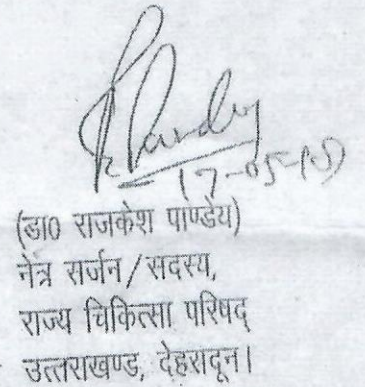 R Pandey
17-05-15
(डा0 राजकेश पाण्डेय)
नेत्र सर्जन/सदस्य,
राज्य चिकित्सा परिषद्
उत्तराखण्ड, देहरादून।